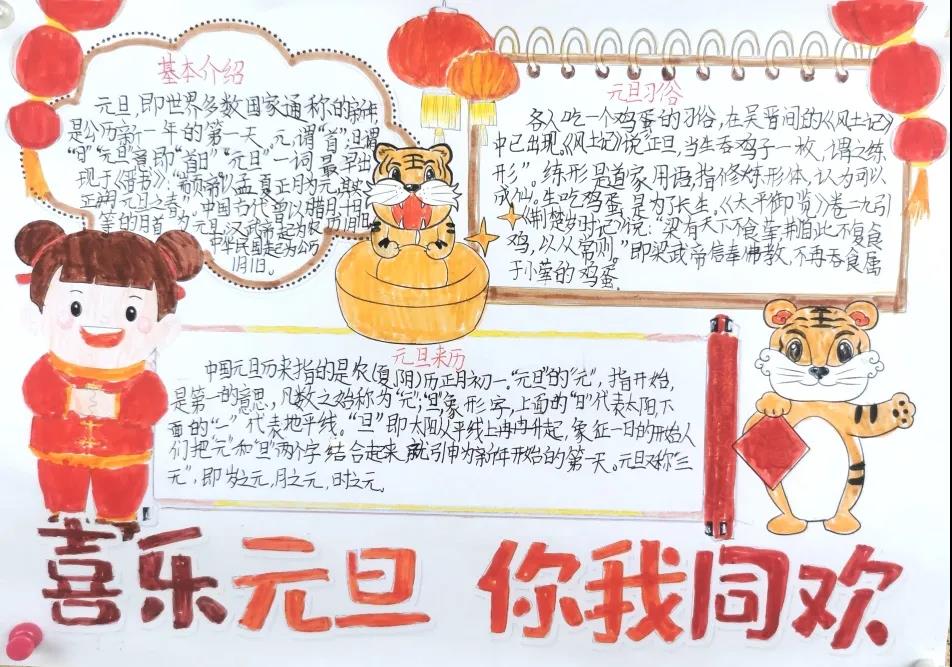 基本介绍
元旦,即世界多数国家通称的“新年”
是公历新一年的第一天。元,谓“首”;旦谓
“日”“元旦”意即“首日”“元旦”一词最早出
现于《晋书》:“颛帝以孟夏正月为元,其实
正朔元旦之春。”中国古代曾以腊月、十月
等的月首为元旦,汉武帝起为农历1月1日,
中华民国起为公历
1月1日。
元旦习俗
各人吃一个鸡蛋的习俗,在吴晋间的《风土记》
中已出现。《风土记》说:正旦,当生吞鸡子一枚,谓之练
形”。练形是道家用语,指修炼形体,认为可以
成仙。生吃鸡蛋,是为了长生。《太平御览》卷二九引
《荆楚岁时记》说:“梁有天下不食荤,荆自此不复食
鸡,以从常则。”即梁武帝信奉佛教,不再吞食属
于小荤的鸡蛋。
元旦来历
中国元旦历来指的是农(夏、阴)历正月初一。“元旦”的“元”,指开始,
是第一的意思,凡数之始称为“元”;“旦”,象形字,上面的“日”代表太阳,下
面的“一”代表地平线。“旦”即太阳从平线上冉冉升起,象征一日的开始。人
们把“元”和“旦”两个字结合起来,就引申为新年开始的第一天。元旦又称“三
元”,即岁之元,月之元,时之元。
喜乐元旦 你我同欢